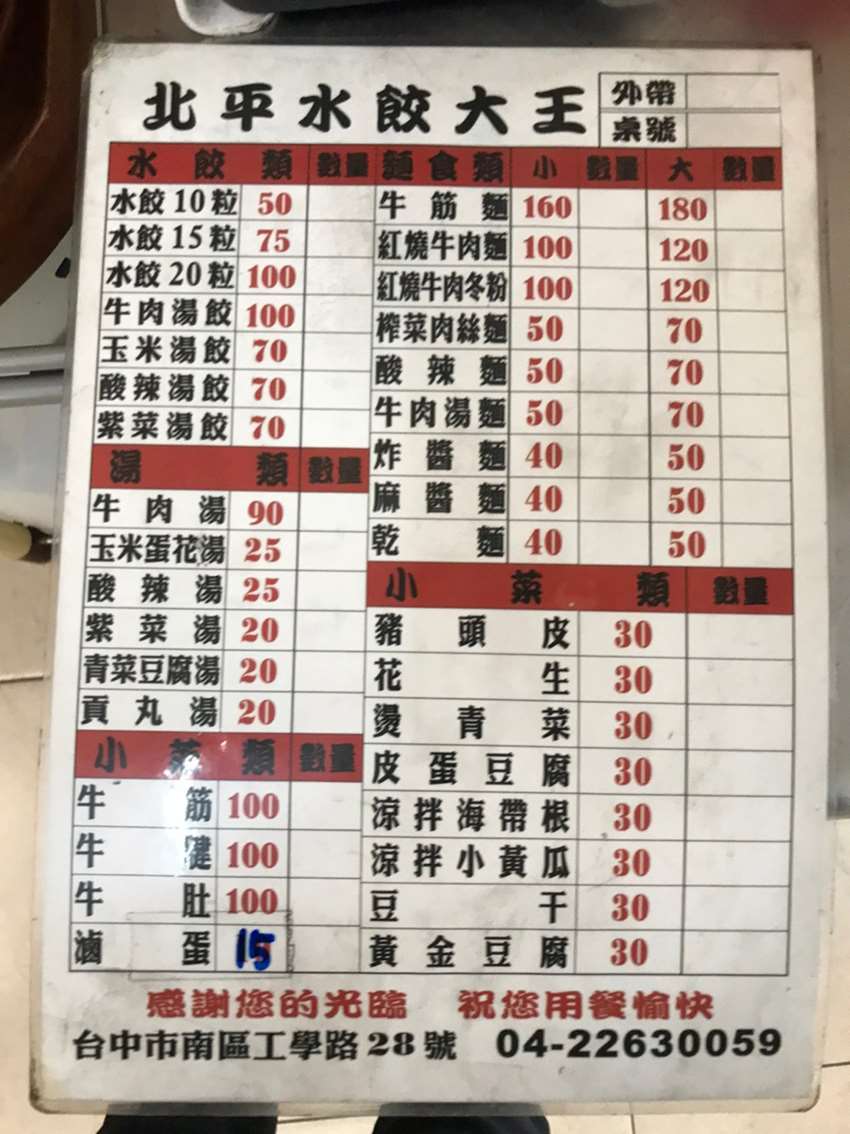 北平水餃大王
外帶
桌號
水餃類 數量
水餃10粒 50
水餃15粒 75
水餃20粒 100
牛肉湯餃 100
玉米湯餃 70
酸辣湯餃 70
紫菜湯餃 70
湯類 數量
牛肉湯 90
玉米蛋花湯 25
酸辣湯 25
紫菜湯 20
青菜豆腐湯 20
貢丸湯 20
小菜類 數量
牛筋 100
牛腱 100
牛肚 100
滷蛋 15
麵食類 小 數量 大 數量
牛筋麵 160 180
紅燒牛肉麵 100 120
紅燒牛肉冬粉 100 120
榨菜肉絲麵 50 70
酸辣麵 50 70
牛肉湯麵 50 70
炸醬麵 40 50
麻醬麵 40 50
乾麵 40 50
小菜類 數量
豬頭皮 30
花生 30
燙青菜 30
皮蛋豆腐 30
涼拌海帶根 30
涼拌小黃瓜 30
豆干 30
黃金豆腐 30
感謝您的光臨 祝您用餐愉快
台中市南區工學路28號 04-22630059